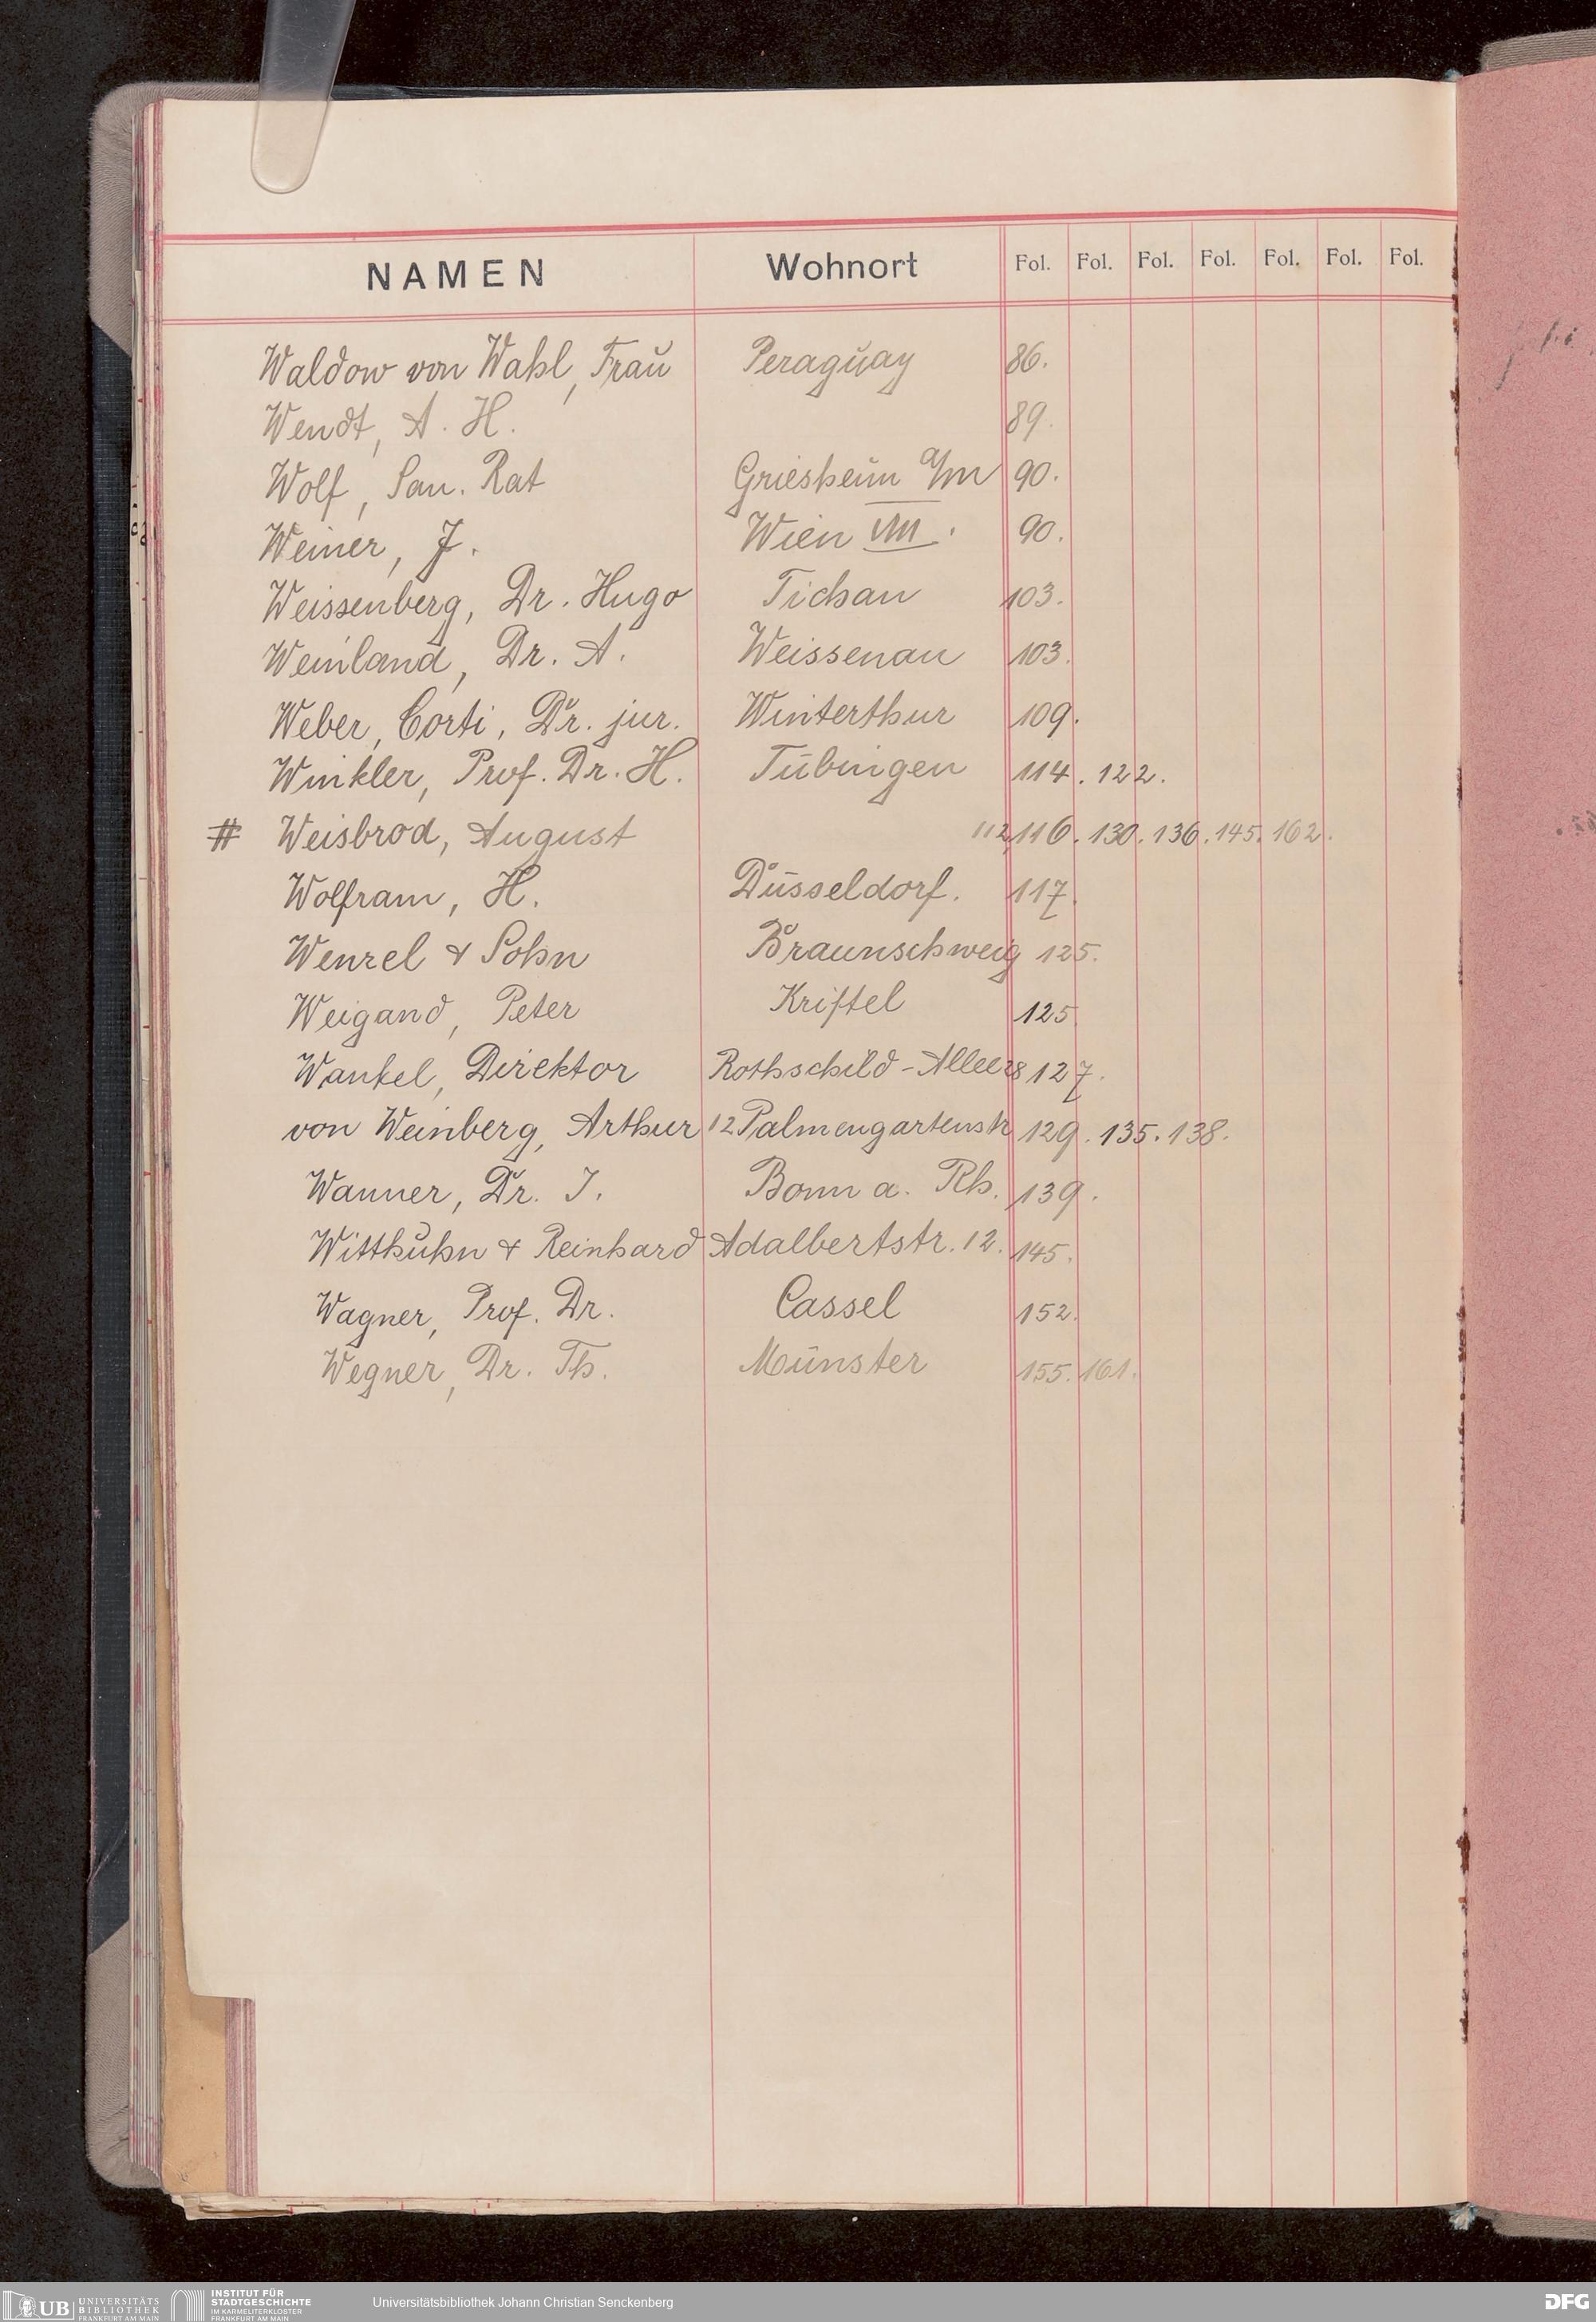 NAMEN Wohnort Fol. Fol. Fol. Fol. Fol. Fol. Fol.
Waldow von Wahl, Frau Peraguay 86.
Wendt, A. H. 89.
Wolf, San. Rat Griesheim a/m 90.
Weiner, J. Wien VIII. 90.
Weissenberg, Dr. Hugo Tichau 103.
Weinland, Dr. A. Weissenau 103.
Weber, Corti, Dr. jur. Winterthur 109.
Winkler, Prof. Dr. H. Tübingen 114. 122.
# Weisbrod, August 112, 116. 130. 136. 145. 162.
Wolfram, H. Düsseldorf. 117.
Wenzel & Sohn Braunschweig 125.
Weigand, Peter Kriftel 125
Wankel, Direktor Rothschild-Allee 28 127.
von Weinberg, Arthur 12 Palmengartenstr 129. 135. 138.
Wanner, Dr. J. Bonn a. Rh. 139.
Witthuhn & Reinhard Adalbertstr. 12. 145.
Wagner, Prof. Dr. Cassel 152.
Wegner, Dr. Th. Münster 155. 161.
UB UNIVERSITÄTS BIBLIOTHEK FRANKFURT AM MAIN
INSTITUT FÜR STADTGESCHICHTE IM KARMELITERKLOSTER FRANKFURT AM MAIN
Universitätsbibliothek Johann Christian Senckenberg
DFG